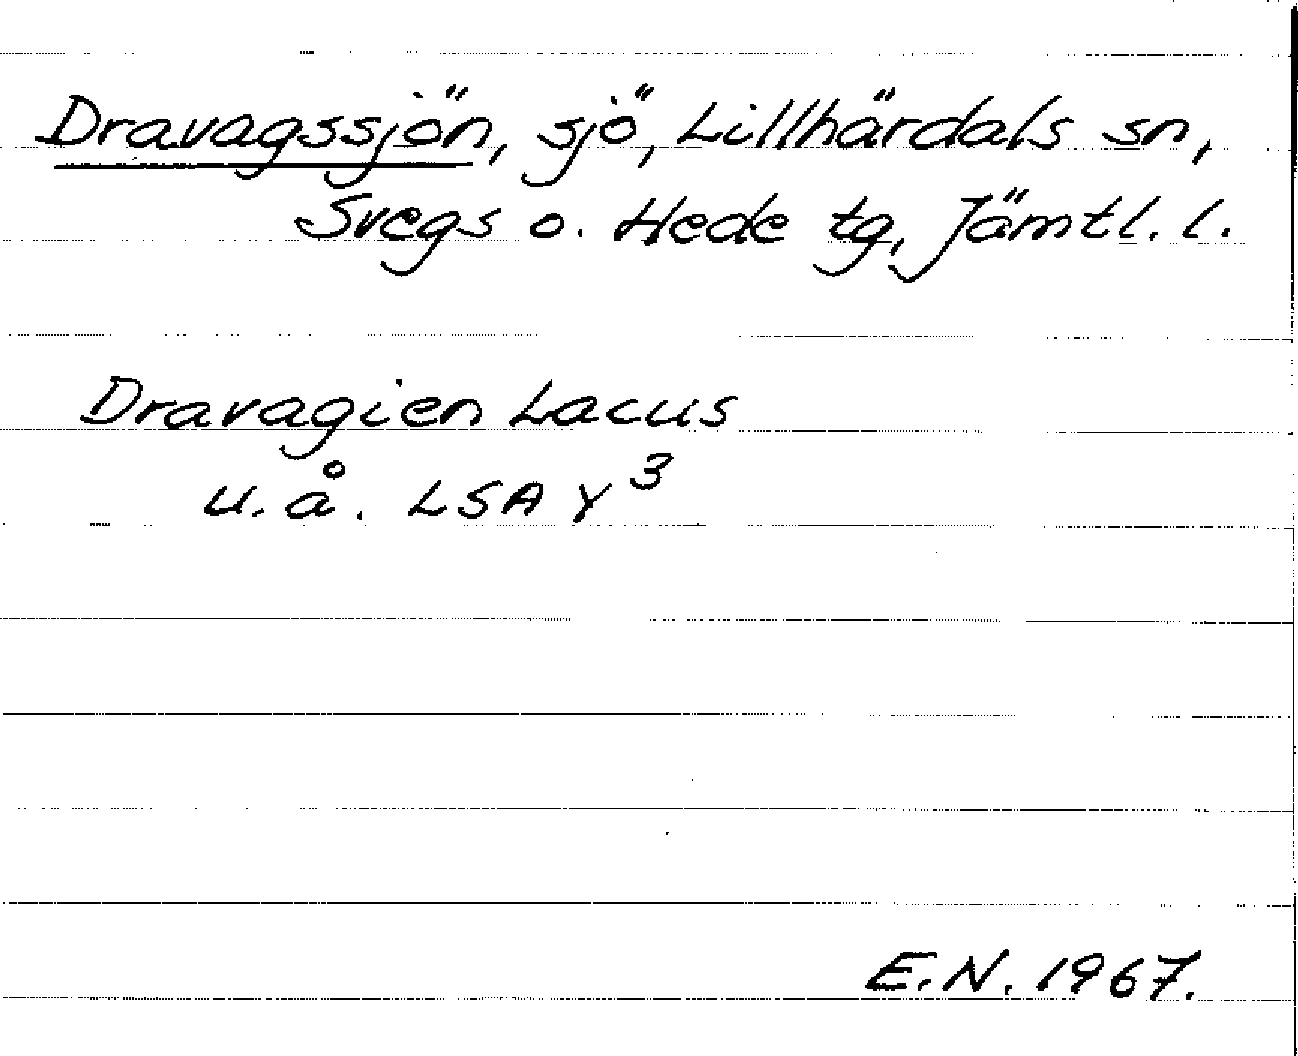 Dravagssjön, sjö, Lillhärdals sn,
Svegs o. Hede tg, Jämtl. l.
Dravagien Lacus
u.å. LSA γ³
E.N. 1967.